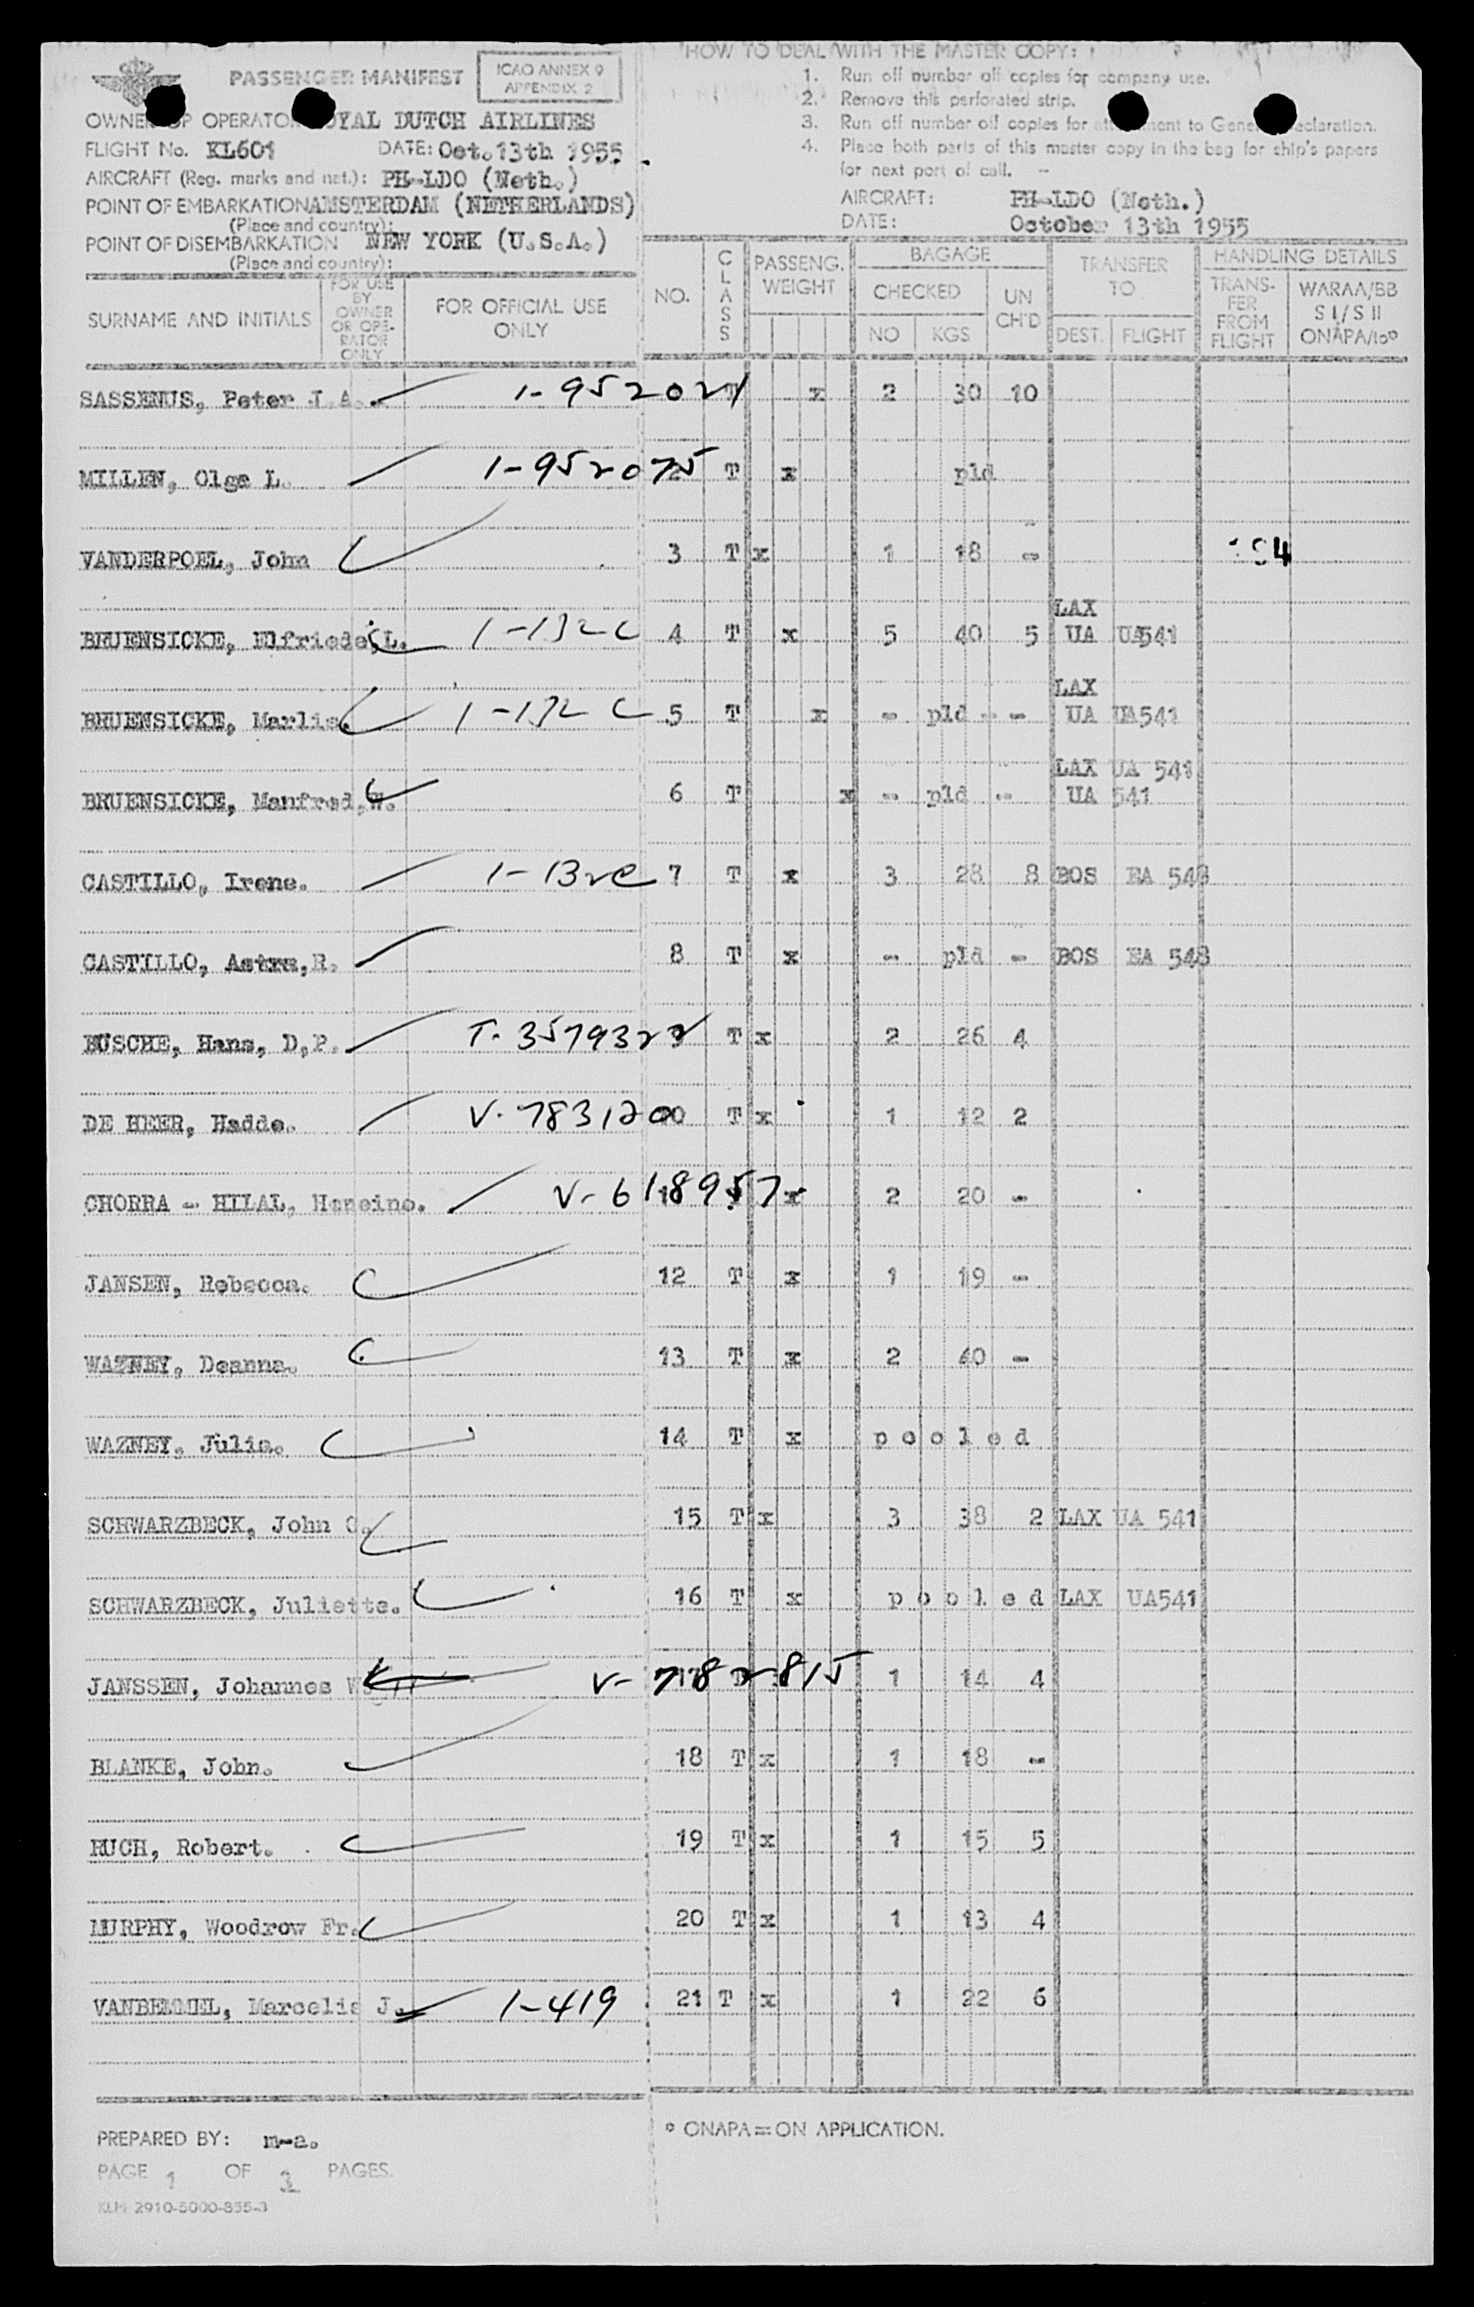 PASSENGER MANIFEST
ICAO ANNEX 9
APPENDIX 2
OWNER OP OPERATO ROYAL DUTCH AIRLINES
FLIGHT No. KL601 DATE: Oct. 13th 1955
AIRCRAFT (Reg. marks and nat.): PH-LDO (Neth.)
POINT OF EMBARKATION AMSTERDAM (NETHERLANDS)
(Place and country):
POINT OF DISEMBARKATION NEW YORK (U.S.A.)
(Place and country):
HOW TO DEAL WITH THE MASTER COPY:
1. Run off number of copies for company use.
2. Remove this perforated strip.
3. Run off number of copies for attachment to General Declaration.
4. Place both parts of this master copy in the bag for ship's papers
for next port of call.
AIRCRAFT: PH-LDO (Neth.)
DATE: October 13th 1955
SURNAME AND INITIALS
FOR USE BY OWNER OR OPE-RATOR ONLY
FOR OFFICIAL USE ONLY
NO.
CLASS
PASSENG. WEIGHT
BAGAGE
CHECKED
NO KGS
UN CH'D
TRANSFER TO
DEST. FLIGHT
HANDLING DETAILS
TRANS-FER FROM FLIGHT
WARAA/BB
S I/S II
ONAPA/100
SASSENUS, Peter J.A. 1-952021 T x 2 30 10
MILLEN, Olga L. 1-952075 T x pld
VANDERPOEL, John 3 T x 1 18 - 194
LAX
BRUENSICKE, Elfriede, L. 1-132C 4 T x 5 40 5 UA UA541
LAX
BRUENSICKE, Marlis. 1-132C 5 T x - pld - - UA UA541
LAX UA 541
BRUENSICKE, Manfred, W. 6 T x - pld - UA 541
CASTILLO, Irene. 1-132C 7 T x 3 28 8 BOS EA 548
CASTILLO, Astra, R. 8 T x - pld - BOS EA 548
BÜSCHE, Hans, D,P. T-3579322 T x 2 26 4
DE HEER, Hadde. V-7831200 T x 1 12 2
CHORRA - HILAL, Hoseino. V-618957 x 2 20 -
JANSEN, Rebecca. 12 T x 1 19 -
WAZNEY, Deanna. 13 T x 2 40 -
WAZNEY, Julia. 14 T x pooled
SCHWARZBECK, John C. 15 T x 3 38 2 LAX UA 541
SCHWARZBECK, Juliette. 16 T x pooled LAX UA541
JANSSEN, Johannes V-7182815 1 14 4
BLANKE, John. 18 T x 1 18 -
RUCH, Robert. 19 T x 1 15 5
MURPHY, Woodrow Fr. 20 T x 1 13 4
VANBEMMEL, Marcelis J. 1-419 21 T x 1 22 6
PREPARED BY: m-a.
PAGE 1 OF 3 PAGES.
KLM 2910-5000-855-3
° ONAPA = ON APPLICATION.